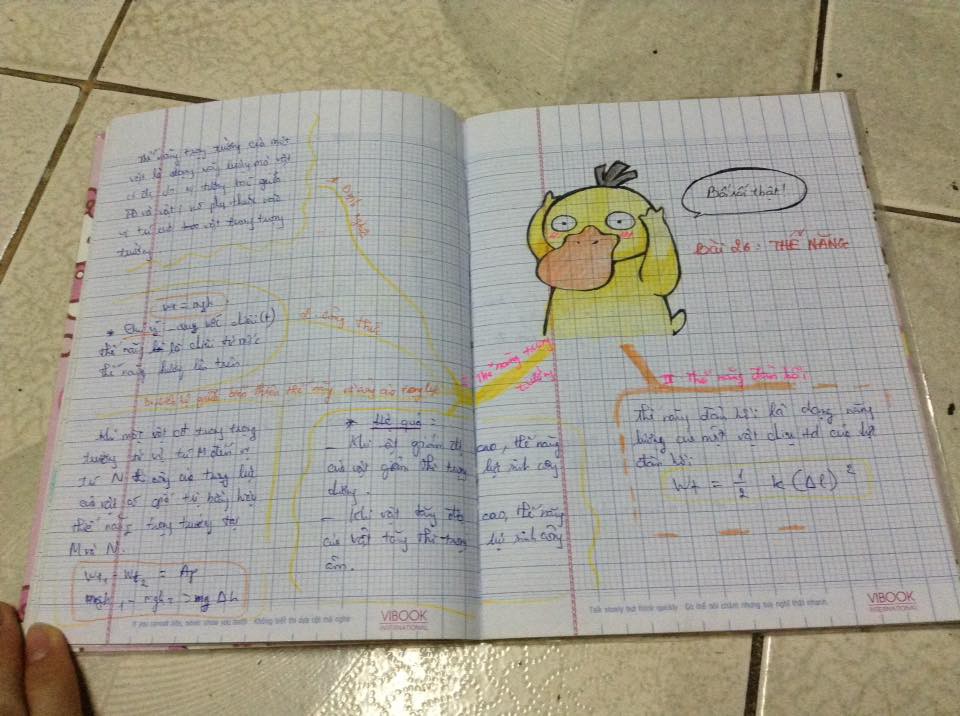 Thế năng trọng trường của một
vật là dạng năng lượng mà vật
có do tương tác giữa
TĐ và vật; nó phụ thuộc vào
vị trí của vật trong trọng
trường
1. Định nghĩa
Wt = mgh
* Chú ý
thế năng là
thế năng hướng lên trên.
2. công thức
I. Thế năng trọng
trường
3. Liên hệ giữa biến thiên thế năng và công của trọng lực
Khi một vật cđ trong trọng
trường từ vị trí M đến vị
trí N thì công của trọng lực
của vật có giá trị bằng hiệu
thế năng trọng trường tại
M và N.
Wt1 - Wt2 = Ap
mgh1 - mgh2 = mgΔh
* Hệ quả:
- Khi vật giảm độ cao, thế năng
của vật giảm thì trọng lực sinh công
dương.
- Khi vật tăng độ cao, thế năng
của vật tăng thì trọng lực sinh công
âm.
If you cannot bite, never show you teeth Không biết thì dựa cột mà nghe
VIBOOK
INTERNATIONAL
Bối rối thật!
Bài 26: THẾ NĂNG
II. Thế năng đàn hồi:
Thế năng đàn hồi: là dạng năng
lượng của một vật chịu td của lực
đàn hồi:
Wt = 1/2 k (Δl)²
Talk slowly but think quickly Có thể nói chậm nhưng suy nghĩ thật nhanh
VIBOOK
INTERNATIONAL